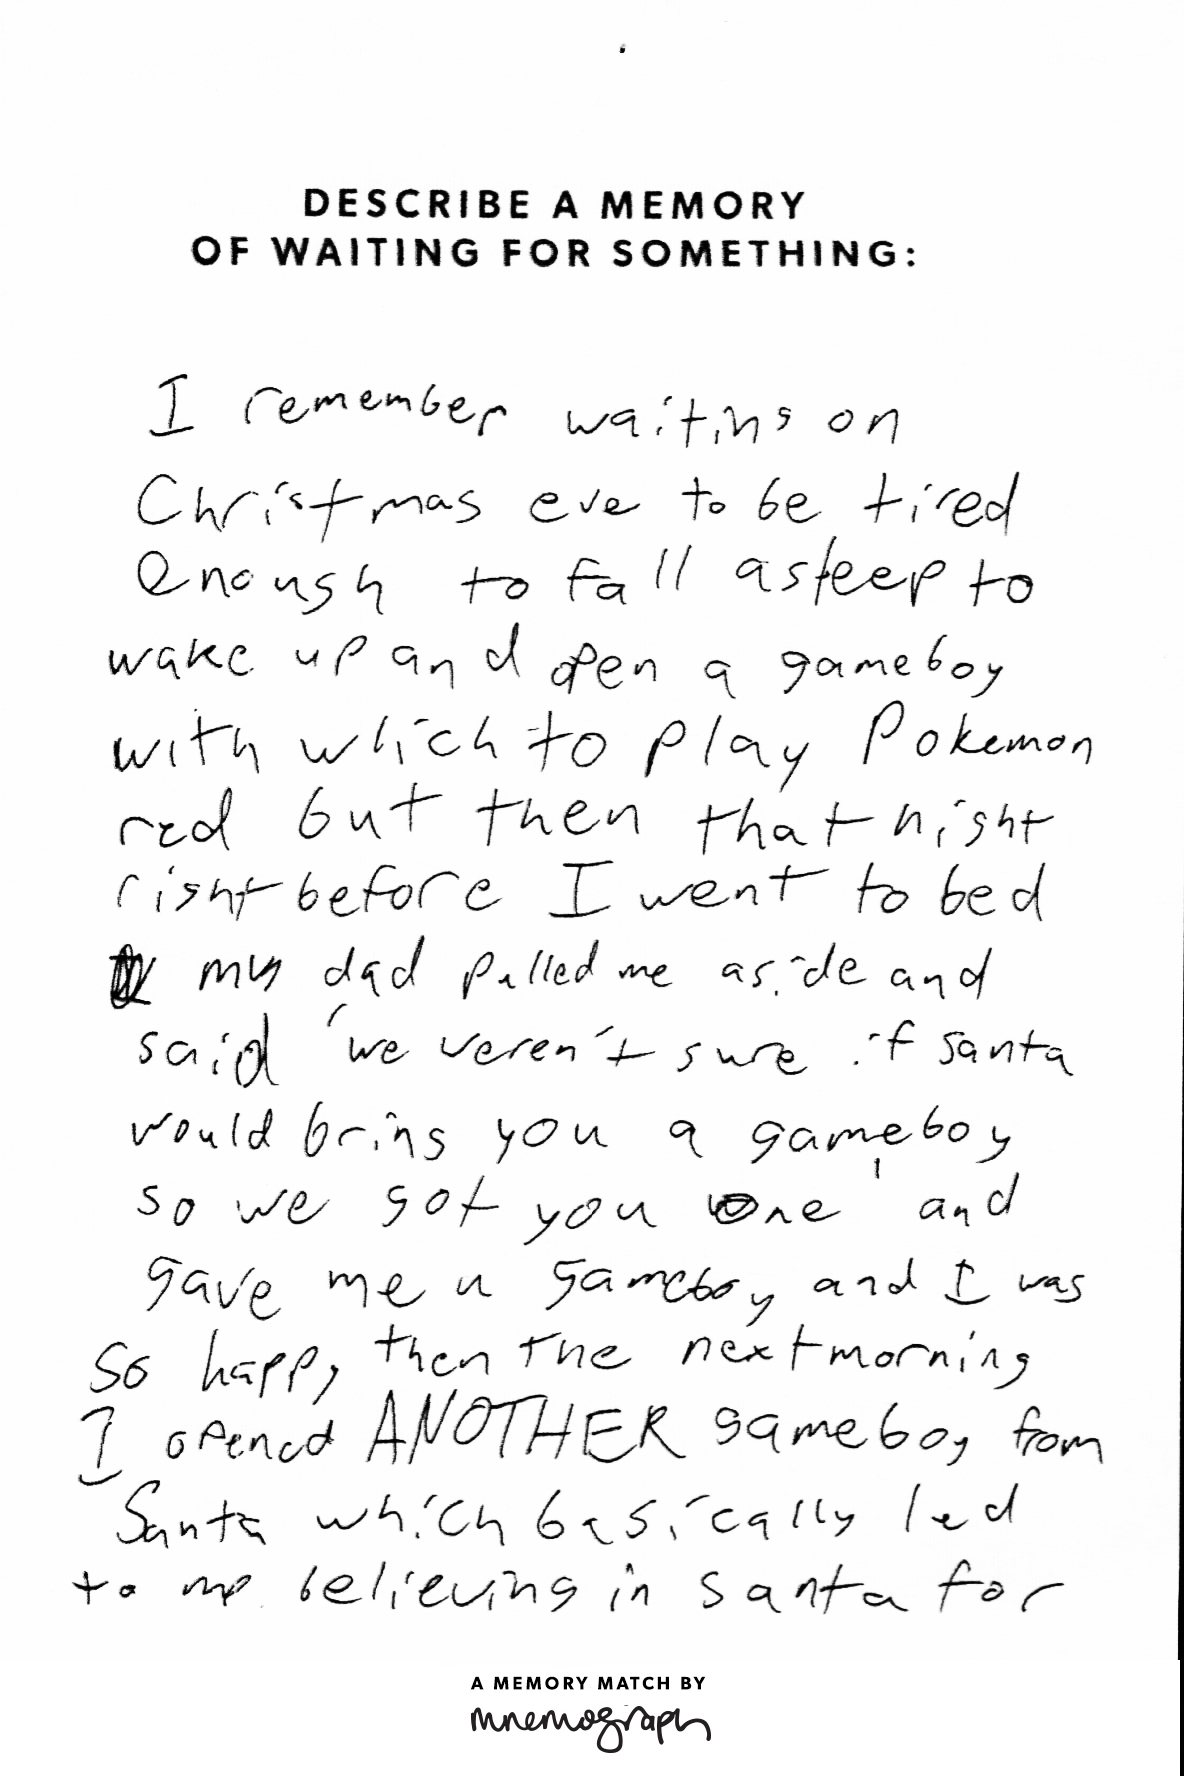 DESCRIBE A MEMORY
OF WAITING FOR SOMETHING:
I remember waiting on
Christmas eve to be tired
enough to fall asleep to
wake up and open a gameboy
with which to play Pokemon
red but then that night
right before I went to bed
my dad pulled me aside and
said 'we weren't sure if santa
would bring you a gameboy
so we got you one' and
gave me a gameboy and I was
so happy, then the next morning
I opened ANOTHER gameboy from
Santa which basically led
to me believing in santa for
A MEMORY MATCH BY
mnemograph